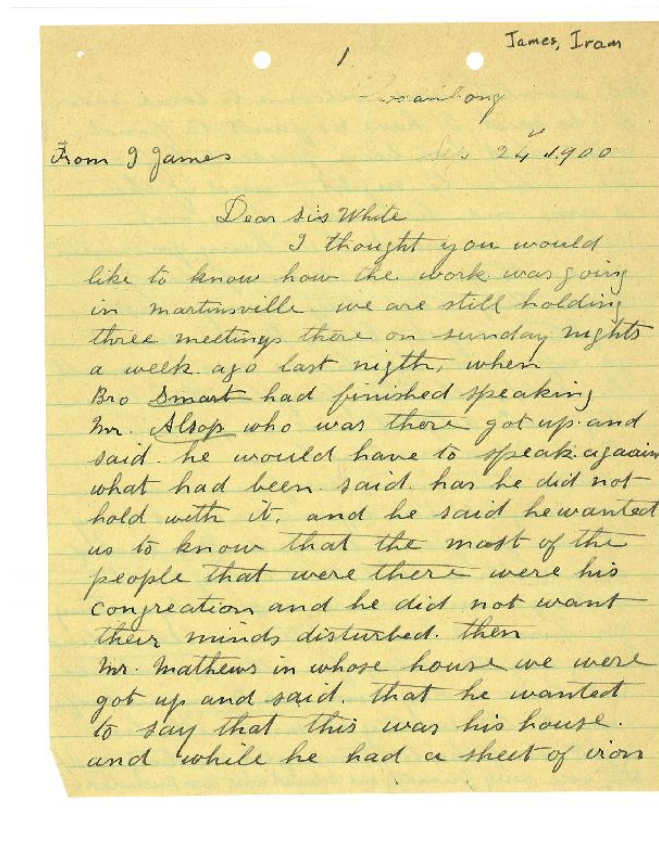 James, Iram
1
From I James
Sep 24 1900
Dear Sis White
I thought you would
like to know how the work was going
in martinsville we are still holding
three meetings there on sunday nights
a week. ago last nigth, when
Bro Smart had finished speaking
Mr. Alsop who was there got up and
said. he would have to speak agaain
what had been said. has he did not
hold with it. and he said he wanted
us to know that the most of the
people that were there were his
congreation and he did not want
their minds disturbed. then
Mr. Mathews in whose house we were
got up and said. that he wanted
to say that this was his house.
and while he had a sheet of iron